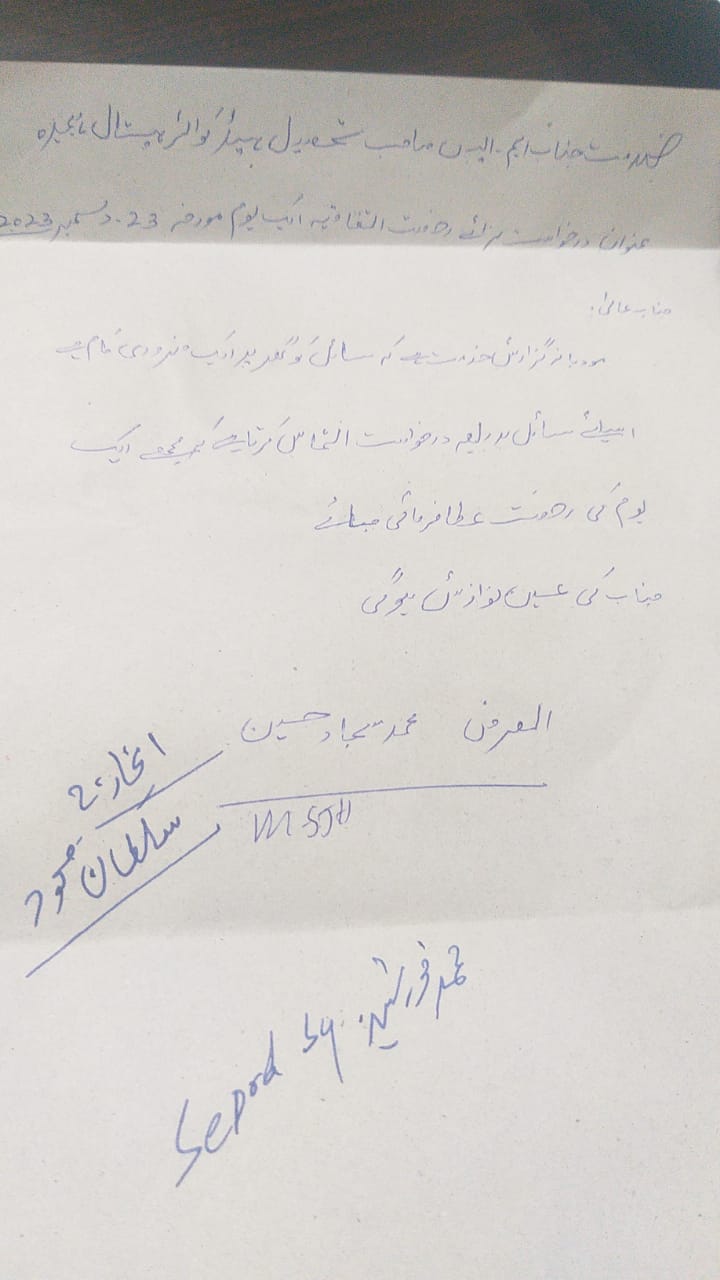 بخدمت جناب ایم۔ایس صاحب تحصیل ہیڈکوائر ہسپتال ہجیرہ
عنوان درخواست برائے رخصت اتفاقیہ ایک یوم مورخہ 23۔دسمبر 2023
جناب عالی!
مودبانہ گزارش خدمت ہے کہ سائل کو گھر پر ایک ضروری کام ہے
اسلئے سائل بذریعہ درخواست التماس کرتا ہے کہ مجھے ایک
یوم کی رخصت عطا فرمائی جائے
جناب کی عین نوازش ہوگی
العرض محمد سجاد حسین
انچارج
سلطان محمود
Sepord by محمد خورشید